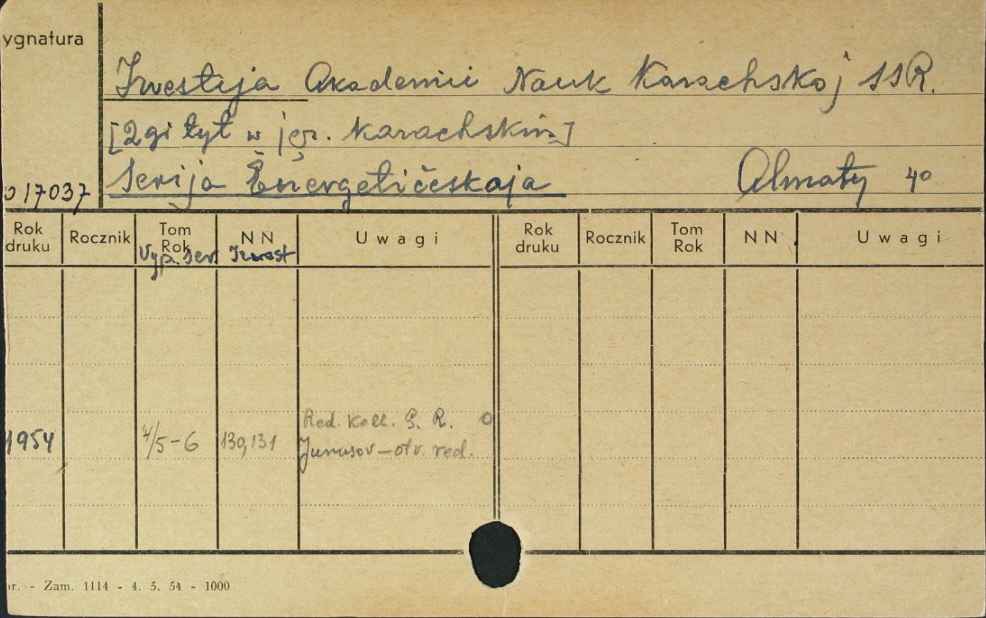 ygnatura
Izvestija Akademii Nauk Kazachskoj SSR.
[2gi tyt w jęz. kazachskim]
17037 Serija Ėnergetičeskaja Almaty 40
Rok druku Rocznik Tom Rok NN Uwagi Rok druku Rocznik Tom Rok NN Uwagi
Vyp. Ser. Izvest
Red. Koll. R.
1954 4/5-6 130,131 Junusov – otv. red.
r. - Zam. 1114 - 4. 5. 54 - 1000